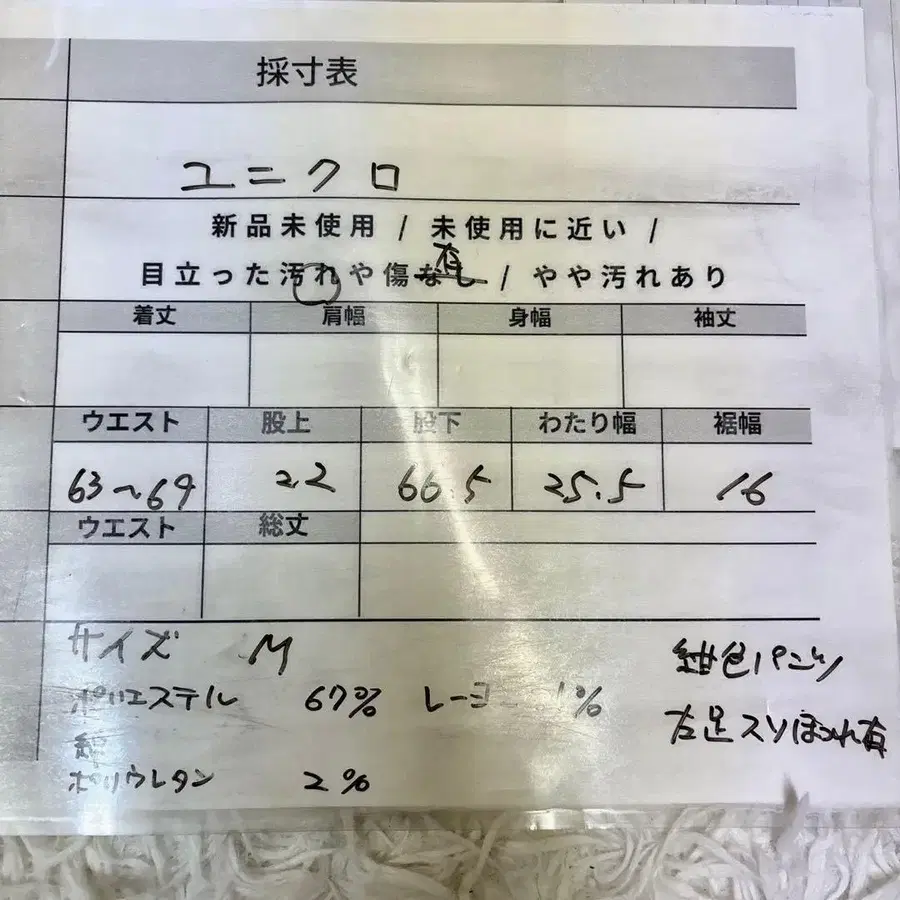 採寸表
ユニクロ
新品未使用 / 未使用に近い /
有
目立った汚れや傷なし / やや汚れあり
着丈 肩幅 身幅 袖丈
ウエスト 股上 股下 わたり幅 裾幅
63〜69 22 66.5 25.5 16
ウエスト 総丈
サイズ M
紺色パンツ
ポリエステル 67% レーヨ 1%
左足スソほつれ有
ポリウレタン 2%